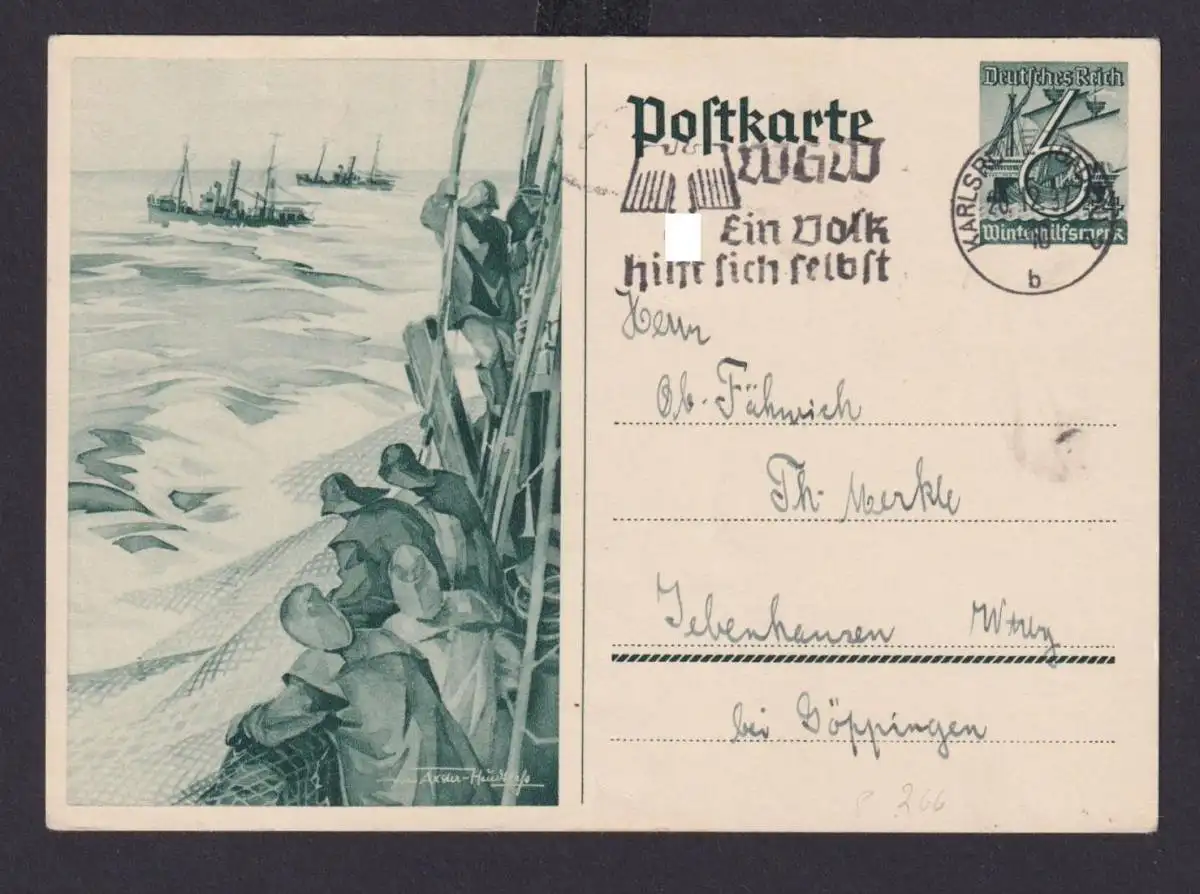 Postkarte
WHW
Ein Volk
hilft sich selbst
Deutsches Reich
6
24
Winterhilfswerk
KARLSRUHE
10
b
Herrn
Ob. Fähnrich
Th. Merkle
Jebenhausen Wttbg
bei Göppingen
P 266
Axster-Heudtlaß